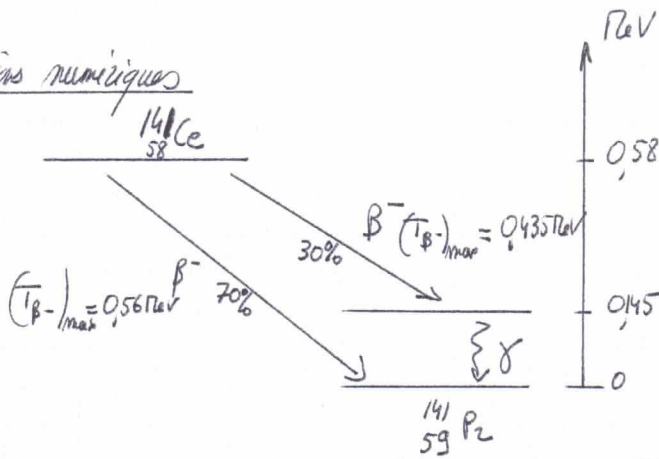 ns numériques
MeV
141 58 Ce
0,58
β⁻ (Tβ-)max = 0,435 MeV
30%
β⁻
70%
(Tβ-)max = 0,56 MeV
0,145
γ
0
141 59 Pr